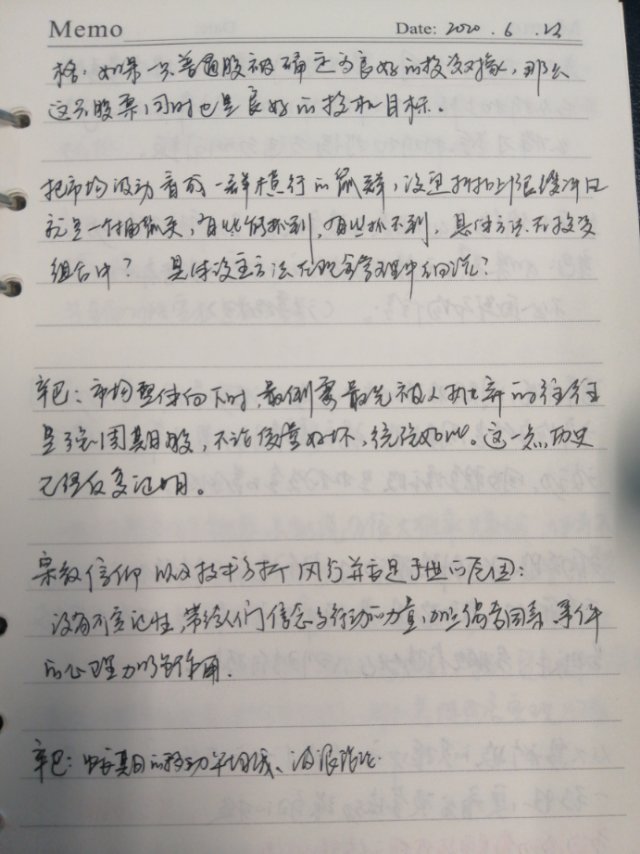 Memo Date: 2020.6.23
格:如果一只普通股被确定为良好的投资对象,那么
这只股票同时也是良好的投机目标。
把市场波动看成一群横行的鼠群,
就是一个捕鼠夹,有些能抓到,有些抓不到,具体方法在投资
组合中? 具体设立方法在现金管理中细说?
辛巴:市场整体向下时,最倒霉最先被人抛弃的往往
是强周期股,不论质量好坏,统统如此。这一点,历史
已经反复证明。
宗教信仰以及技术分析风行并立足于世的原因:
没有可实证性,带给人们信念与行动的力量,加些偶然因素、事件
的心理力的等作用.
辛巴:中长期的移动平均线、波浪理论